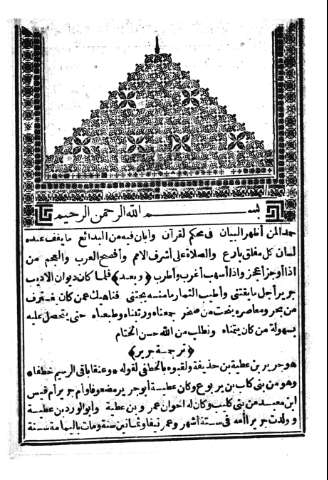 بسم الله الرحمن الرحيم
حمدا لمن أظهر البيان في محكم القرآن وأبان فيه من البدائع ما يقف عنده
لسان كل مفلق بارع والصلاة على أشرف الامم وأفصح العرب والعجم من
اذا أوجز أعجز واذا أسهب أغرب وأطرب (وبعد) فلما كان ديوان الاديب
جرير أجل ما يقتنى وأطيب الثمار ما منه يجتنى فناهيك عمن كان يغترف
من بحر ومعاصروه ينحت من صخر جمعناه ورتبناه وطبعناه حتى يتحصل عليه
بسهولة من كان يتمناه ونطلب من الله حسن الختام
(ترجمة جرير)
هو جرير بن عطية بن حذيفة ولقبوه بالخطفى لقوله وعنقا باقى الرسيم خطفا
وهو من بنى كليب بن يربوع وكان عطية أبو جرير مضعوفا وأم جرير أم قيس
ابن معبد من بنى كليب وكان له اخوان عمرو بن عطية وأبو الورد بن عطية
وولدت جريرا أمه فى ستة أشهر وعمر نيفا وثمانين سنة ومات باليمامة سنة